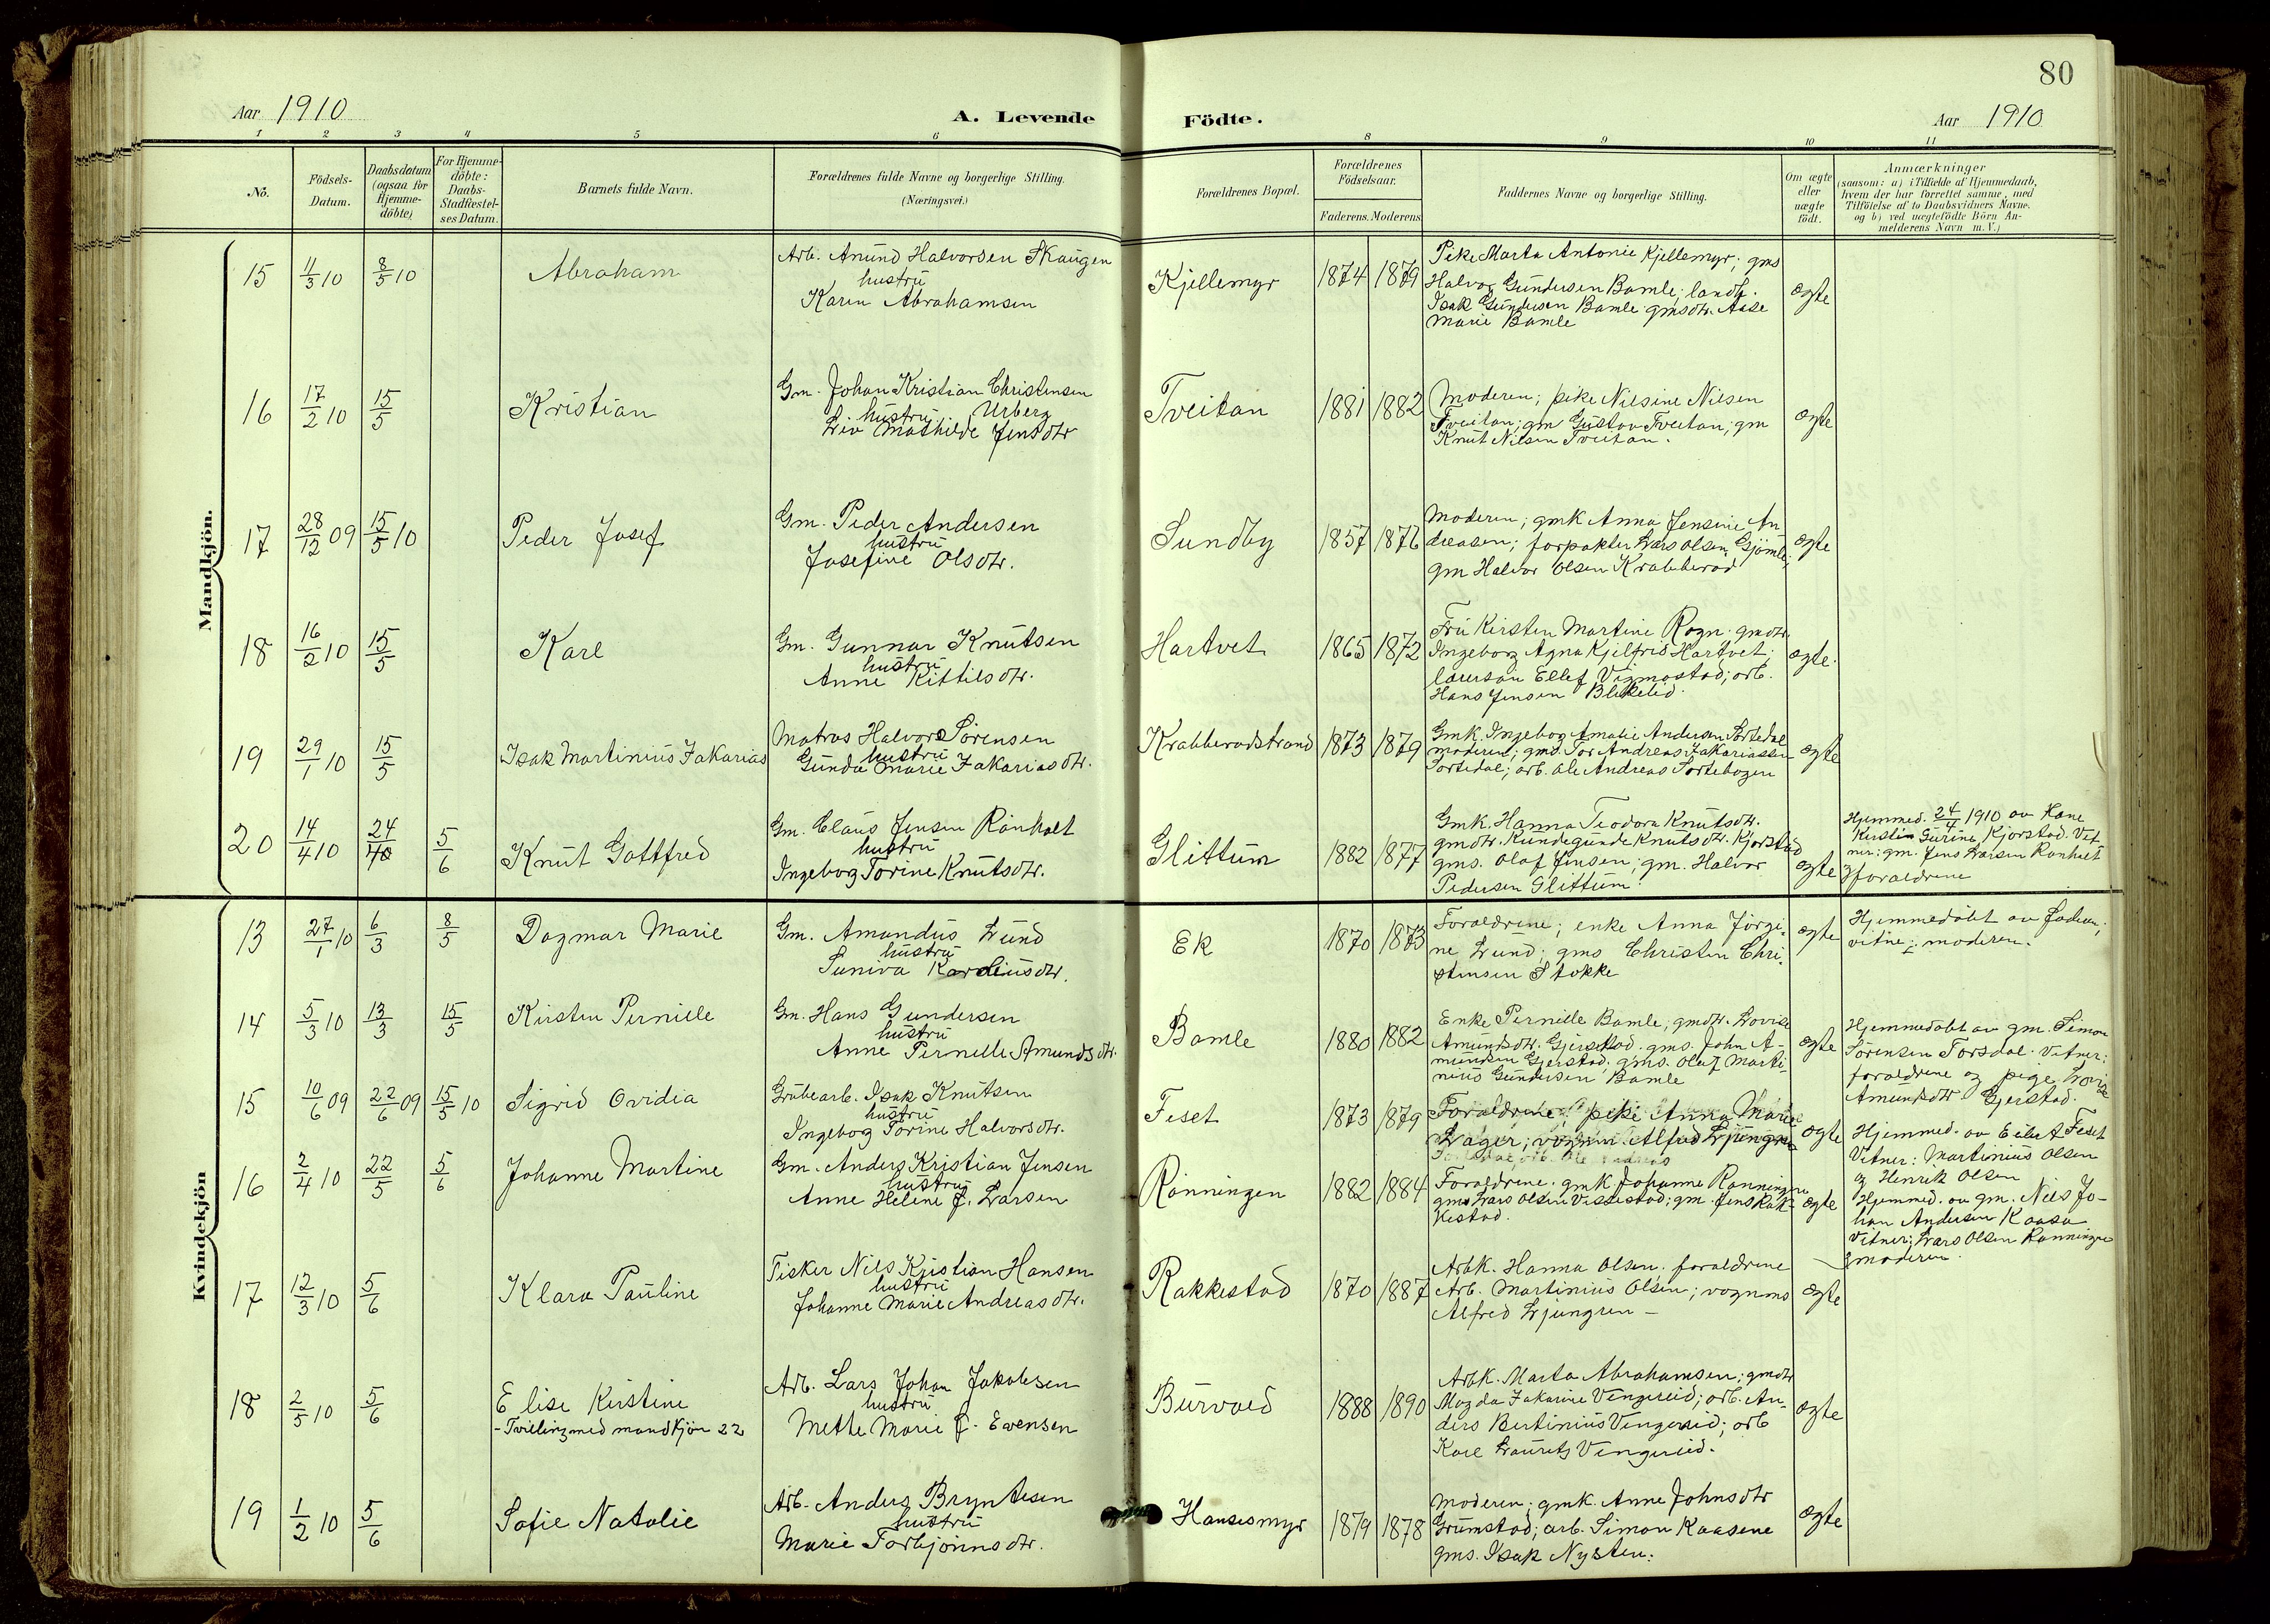 80
Aar 1910
A. Levende
Födte.
Aar 1910
1 2 3 4 5 6 8 9 10 11
No.
Födsels-
Datum.
Daabsdatum
(ogsaa for
Hjemme-
döbte)
For Hjemme-
döbte:
Daabs-
Stadfæstel-
ses Datum.
Barnets fulde Navn.
Forældrenes fulde Navne og borgerlige Stilling.
(Næringsvei.)
Forældrenes Bopæl.
Forældrenes
Födselsaar.
Faderens. Moderens
Faddernes Navne og borgerlige Stilling.
Om ægte
eller
uægte
födt.
Anmærkninger
(saasom: a) i Tilfælde af Hjemmedaab,
hvem der har forrettet samme, med
Tilföielse af to Daabsvidners Navne.
og b) ved uægtefödte Börn An-
melderens Navn m. V.)
Mandkjön.
15 11/3 10 8/5 10
Abraham
Arb. Anund Halvorsen Skaugen
hustru
Karen Abrahamsen
Kjellemyr
1874 1879
Pike Marta Antonie Kjellemyr; gms
Halvor Gundersen Bamle; landh.
Isak Gundersen Bamle gmsdtr. Aase
Marie Bamle
ægte
16 17/2 10 15/5
Kristian
Gm. Johan Kristian Christensen
hustru Urberg
Liv Mathilde Jensdtr
Tveitan
1881 1882
Moderen; pike Nilsine Nilsen
Tveitan; gm Gustav Tveitan; gm
Knut Nilsen Tveitan.
ægte
17 28/12 09 15/5 10
Peder Josef
Gm. Peder Andersen
hustru
Josefine Olsdtr.
Sundby
1857 1876
Moderen; gmk Anna Jensine An
dreasen; forpakter Lars Olsen Gjömle;
gm Halvor Olsen Krabberød
ægte
18 16/2 10 15/5
Karl
Gm. Gunnar Knutsen
hustru
Anne Kittilsdtr.
Hartvet
1865 1872
Fru Kirsten Martine Rogn. gmdtr.
Ingeborg Agna Kjelfrid Hartvet;
lærersön Ellef Vigmostad; arb.
Hans Jensen Blekelid.
ægte.
19 29/1 10 15/5
Isak Martinius Zakarias
Matros Halvor Sörensen
hustru
Gunda Marie Zakariasdtr.
Krabberødstrand
1873 1879
Gmk. Ingebog Amalie Andersen Sortedal
moderen; gms. Tor Andreas Zakariassen
Sortedal; arb. Ole Andreas Sortebogen
ægte
20 14/4 10 24/4 5/6
Knut Gottfred
Gm. Claus Jensen Rönholt
hustru
Ingebog Torine Knutsdtr.
Glittum
1882 1877
Gmk. Hanna Teodora Knutsdtr.
gmdtr. Kundegunde Knutsdtr. Kjorstad
gms. Olaf Jensen; gm. Halvor
Pedersen Glittum.
ægte
Hjemmed. 24/4 1910 av Kone
Kirstin Gurine Kjorstad. Vit-
ner: gm. Jens Larsen Rønholt
og forældrene
Kvindekjön
13 27/1 10 6/3 8/5
Dagmar Marie
Gm. Amandus Lund
hustru
Suniva Karoliusdtr.
Ek
1870 1873
Forældrene; enke Anna Jörgi-
ne Lund; gms Christen Chri-
stensen Stokke
ægte
Hjemmedöbt av faderen;
vitne: moderen.
14 5/3 10 13/3 15/5
Kirsten Pernille
Gm. Hans Gundersen
hustru
Anne Pernille Amundsdtr.
Bamle
1880 1882
Enke Pernille Bamle; gmdtr. Lovise
Amundsdtr. Gjerstad. gms. John A-
mundsen Gjerstad; gms. Olaf Marti-
nius Gundersen Bamle
ægte
Hjemmedöbt av gm. Simon
Sörensen Torsdal. Vitner:
forældrene og pige Lovise
Amundsdtr Gjerstad.
15 10/6 09 22/6 09 15/5 10
Sigrid Ovidia
Grubearb. Isak Knutsen
hustru
Ingebog Torine Halvorsdtr.
Feset
1873 1879
Forældrene; pike Anna Marie
Lager; vognm Alfred Ljungren
ægte
Hjemmed. av Eilert Feset
Vitner: Martinius Olsen
og Henrik Olsen
16 2/4 10 22/5 5/6
Johanne Martine
Gm. Anders Kristian Jensen
hustru
Anne Helene J. Larsen
Rönningen
1882 1884
Forældrene. gmk Johanne Rønningen
gms Lars Olsen Vissestad; gm. Jens Rak-
kestad.
ægte
Hjemmed. av gm. Nils Jo-
han Andersen Kaasa
Vitner: Lars Olsen Rønningen
og moderen.
17 12/3 10 5/6
Klara Pauline
Fisker Nils Kristian Hansen
hustru
Johanne Marie Andreasdtr.
Rakkestad
1870 1887
Arbk. Hanna Olsen. forældrene
Arb. Martinius Olsen; vognms
Alfred Ljungren –
ægte
18 2/5 10 5/6
Elise Kirstine
- Tvilling med mandkjön 22
Arb. Lars Johan Jakobsen
hustru
Mette Marie J. Evensen
Burvald
1888 1890
Arbk. Marta Abrahamsen; gmdtr
Magda Zakarine Vingereid; arb. An-
ders Bertinius Vingereid; arb
Karl Laurits Vingereid.
ægte
19 1/2 10 5/6
Sofie Natalie
Arb. Anders Bryntesen
hustru
Marie Torbjörnsdtr.
Hansesmyr
1879 1878
Moderen; gmk. Anne Johnsdtr
Grumstad; arb. Simon Kaasene
gms. Isak Nysten.
ægte